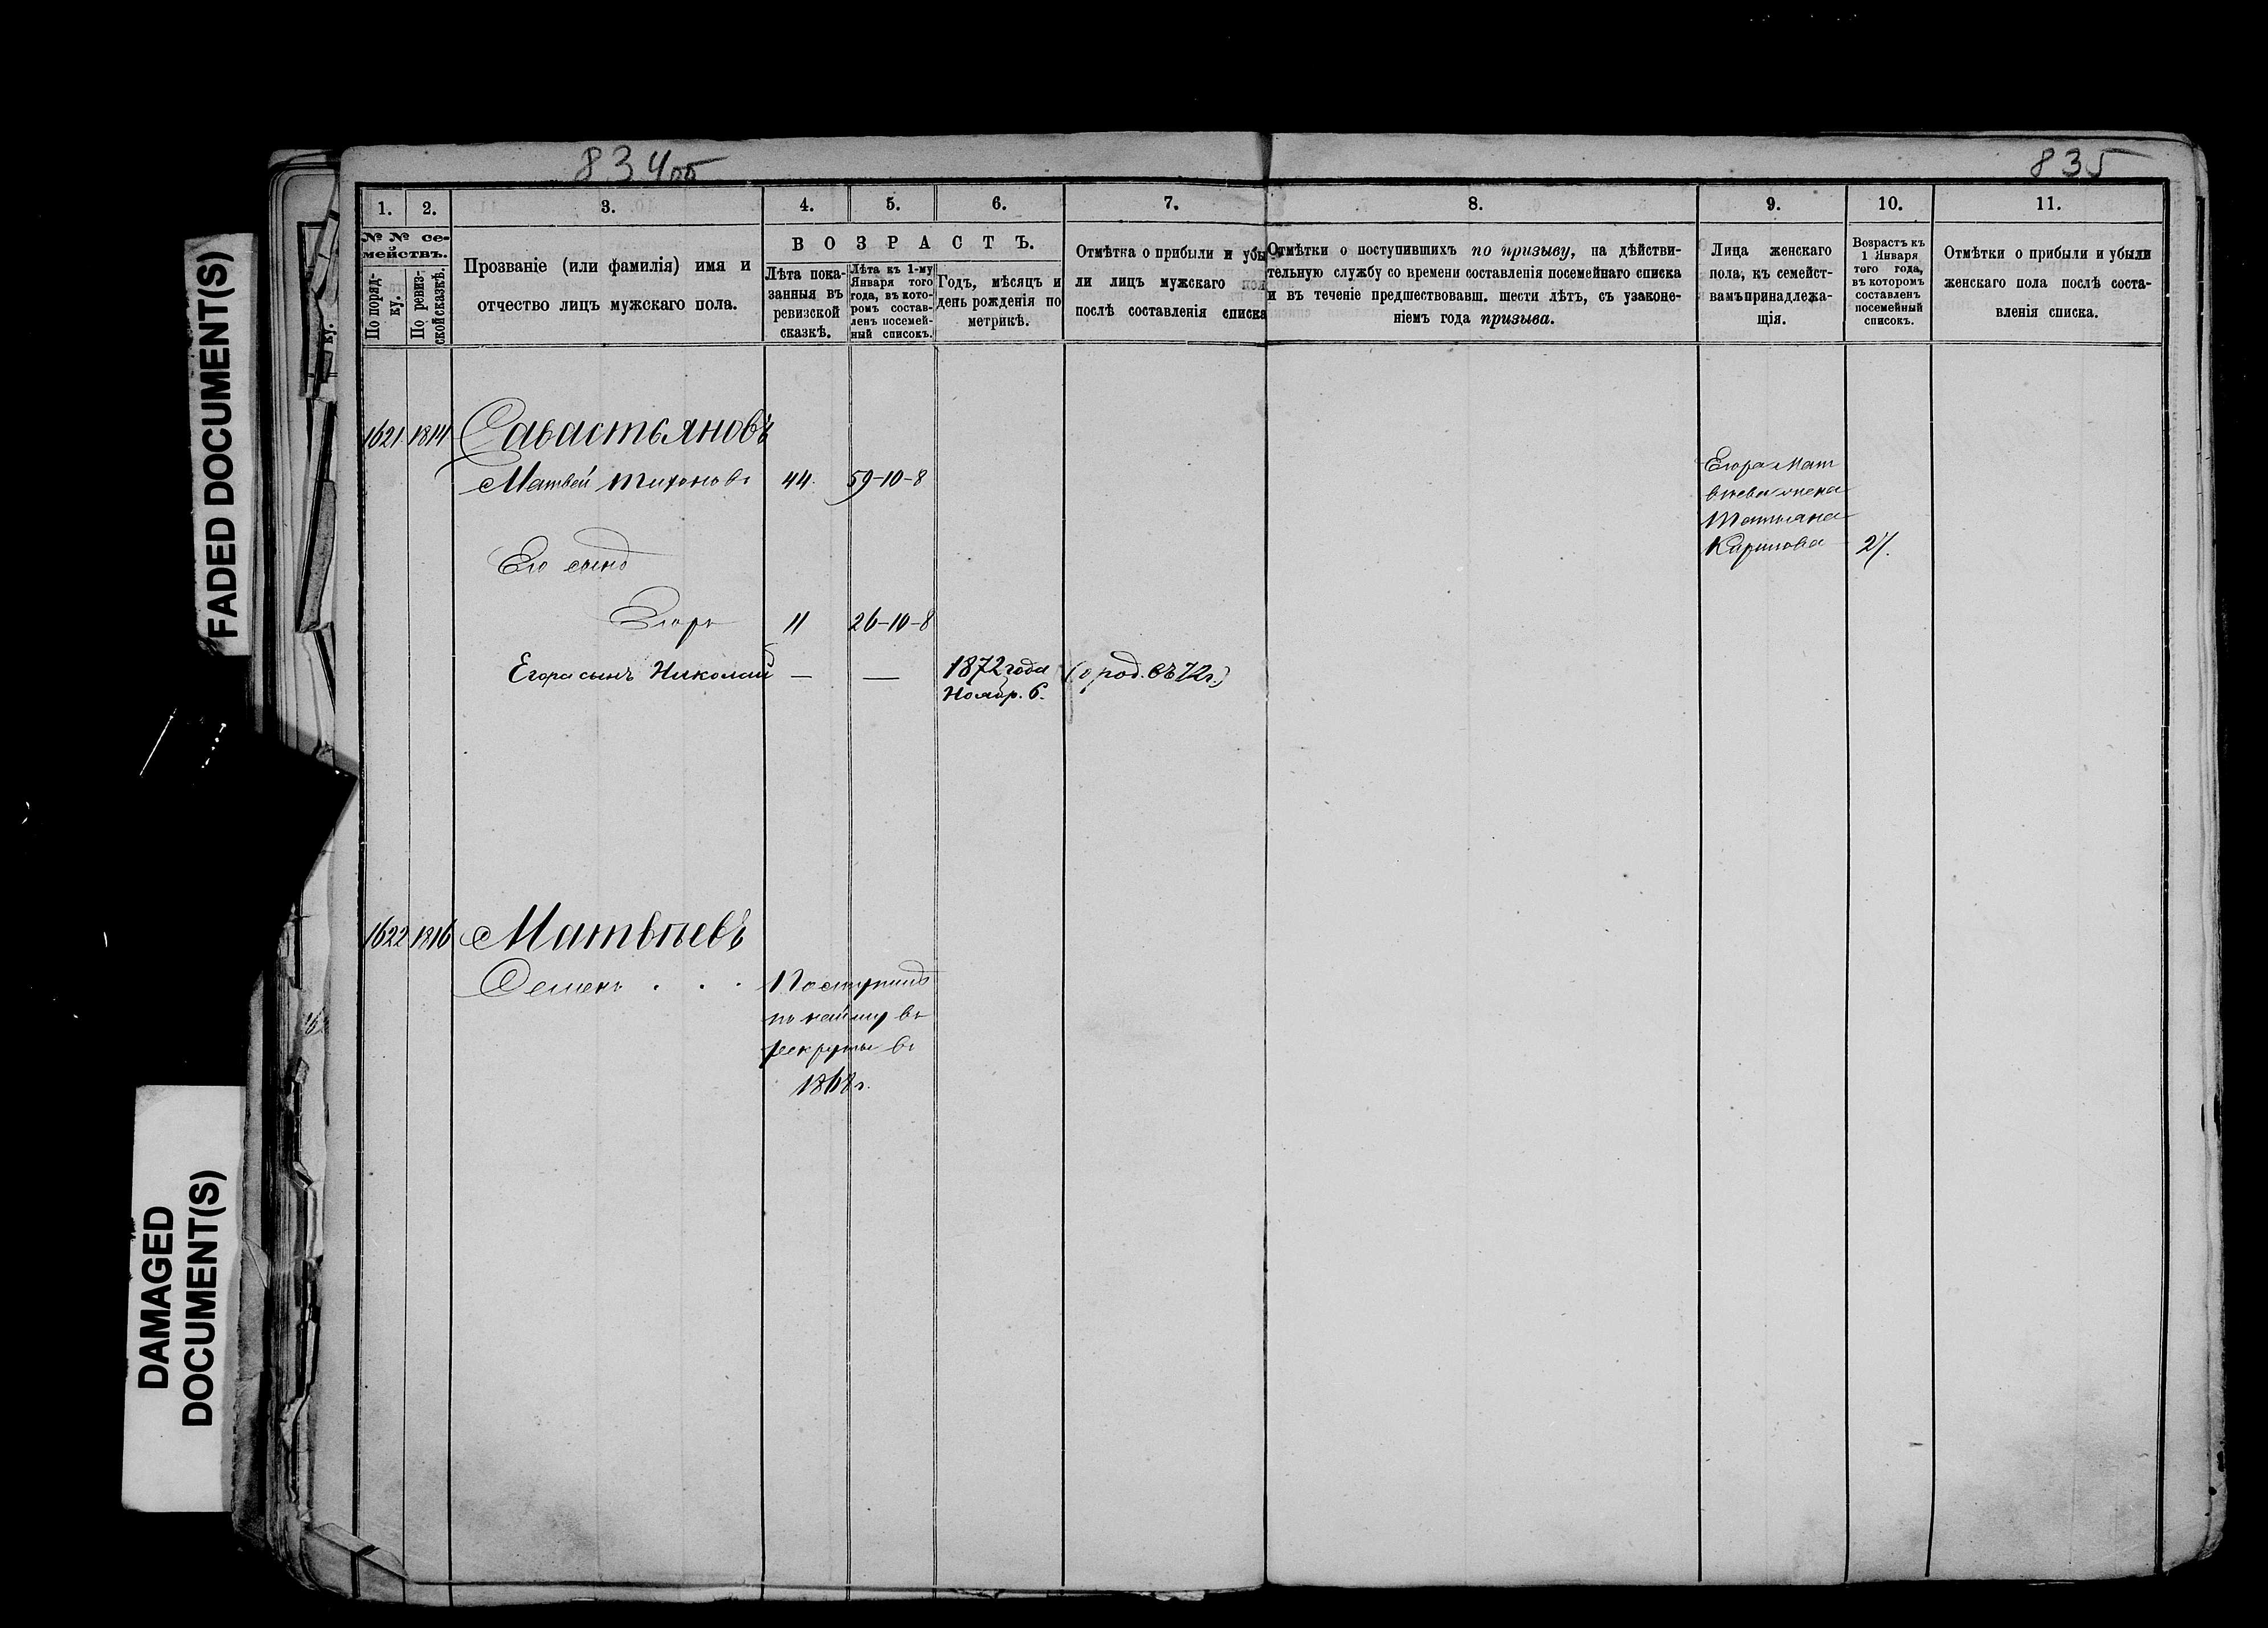 834об
835
1. 2. 3. 4. 5. 6. 7. 8. 9. 10. 11.
№ № се-
мействъ.
По поряд-
ку.
По ревиз-
ской сказкѣ.
Прозваніе (или фамилія) имя и
отчество лицъ мужскаго пола.
ВОЗРАСТЪ.
Лѣта пока-
занныя въ
ревизской
сказкѣ.
Лѣта къ 1-му
Января того
года, въ кото-
ромъ состав-
ленъ посемей-
ный списокъ.
Годъ, мѣсяцъ и
день рожденія по
метрикѣ.
Отмѣтка о прибыли и убы
ли лицъ мужскаго пол
послѣ составленія списка
Отмѣтки о поступившихъ по призыву, на дѣйстви-
тельную службу со времени составленія посемейнаго списка
и въ теченіе предшествовавш. шести лѣтъ, съ узаконе-
ніемъ года призыва.
Лица женскаго
пола, къ семейст-
вамъ принадлежа-
щія.
Возрастъ къ
1 Января
того года,
въ которомъ
составленъ
посемейный
списокъ.
Отмѣтки о прибыли и убыли
женскаго пола послѣ соста-
вленія списка.
1621 1814 Савастьяновъ
Матвей Тихоновъ 44. 59-10-8
Его сынъ
Егоръ 11 26-10-8
Егора сынъ Николай — — 1872 года (о род. въ 72г.)
Ноябр. 6.
Егора Мат
вѣева жена
Татьяна
Карпова 27.
1622 1816 Матвѣевъ
Семенъ . . . Поступилъ
по найму въ
рекруты въ
1868г.
FADED DOCUMENT(S)
DAMAGED
DOCUMENT(S)